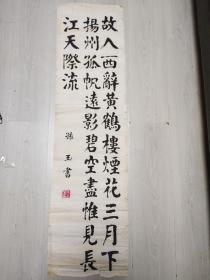 故人西辭黃鶴樓煙花三月下
揚州孤帆遠影碧空盡惟見長
江天際流
孫玉書